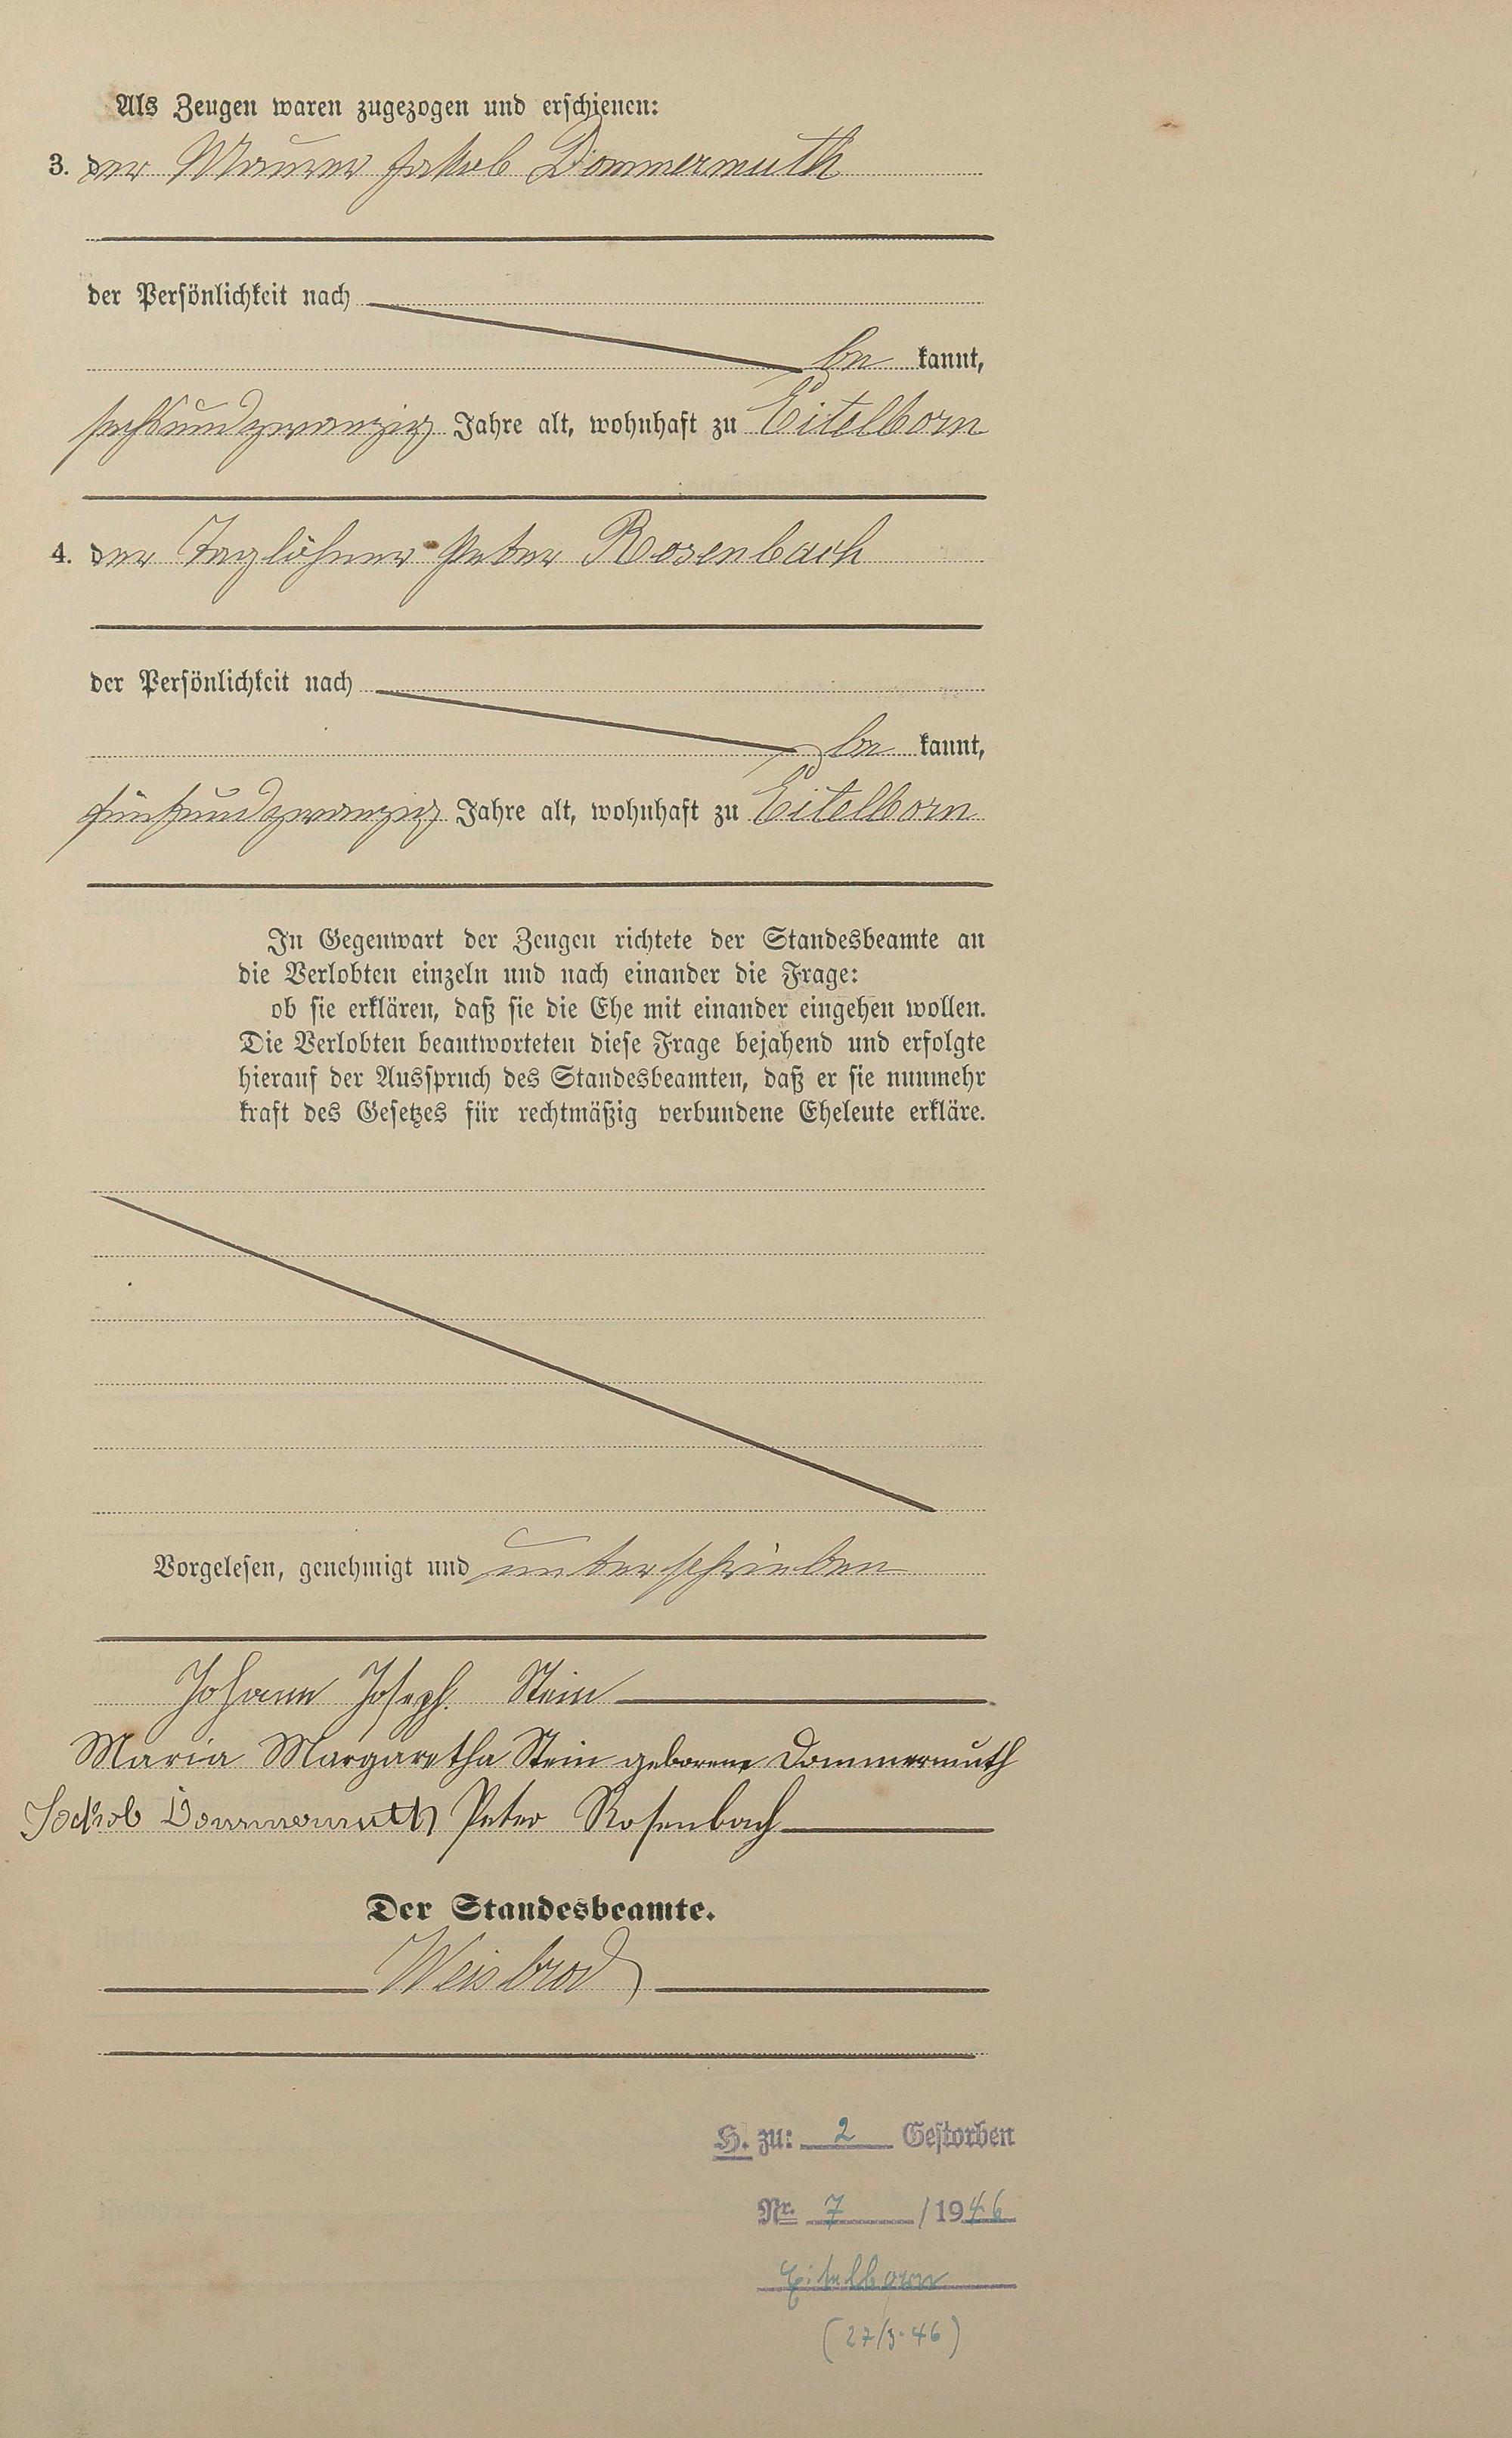 Als Zeugen waren zugezogen und erschienen:
3. der Maurer Jakob Dommermuth
der Persönlichkeit nach
be kannt,
sechsundzwanzig Jahre alt, wohnhaft zu Eitelborn
4. der Taglöhner Peter Rosenbach
der Persönlichkeit nach
be kannt,
fünfundzwanzig Jahre alt, wohnhaft zu Eitelborn
In Gegenwart der Zeugen richtete der Standesbeamte an
die Verlobten einzeln und nach einander die Frage:
ob sie erklären, daß sie die Ehe mit einander eingehen wollen.
Die Verlobten beantworteten diese Frage bejahend und erfolgte
hierauf der Ausspruch des Standesbeamten, daß er sie nunmehr
kraft des Gesetzes für rechtmäßig verbundene Eheleute erkläre.
Vorgelesen, genehmigt und unterschrieben
Johann Joseph Stein
Maria Margaretha Stein geborene Dommermuth
Jackob Dommermuth Peter Rosenbach
Der Standesbeamte.
Weisbrod
H. zu: 2 Gestorben
Nr. 7 /1946
Eitelborn
(27/3.46)